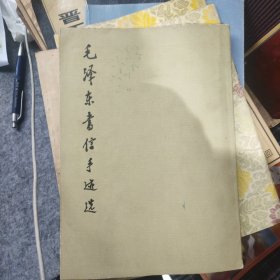 毛泽东书信手迹选
晋